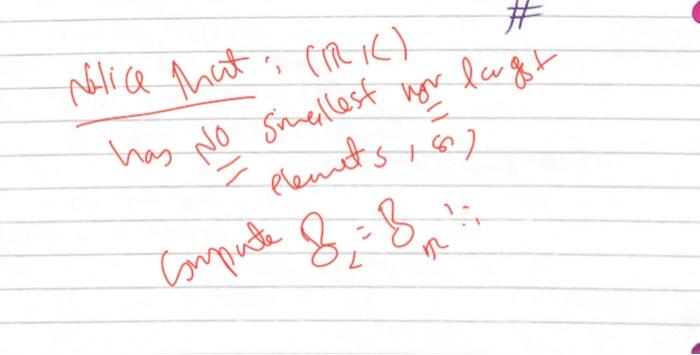 #
Notice that: (ℝ, <)
has No smallest nor largest
elements, so,
Compute B_< = B_ℝ :